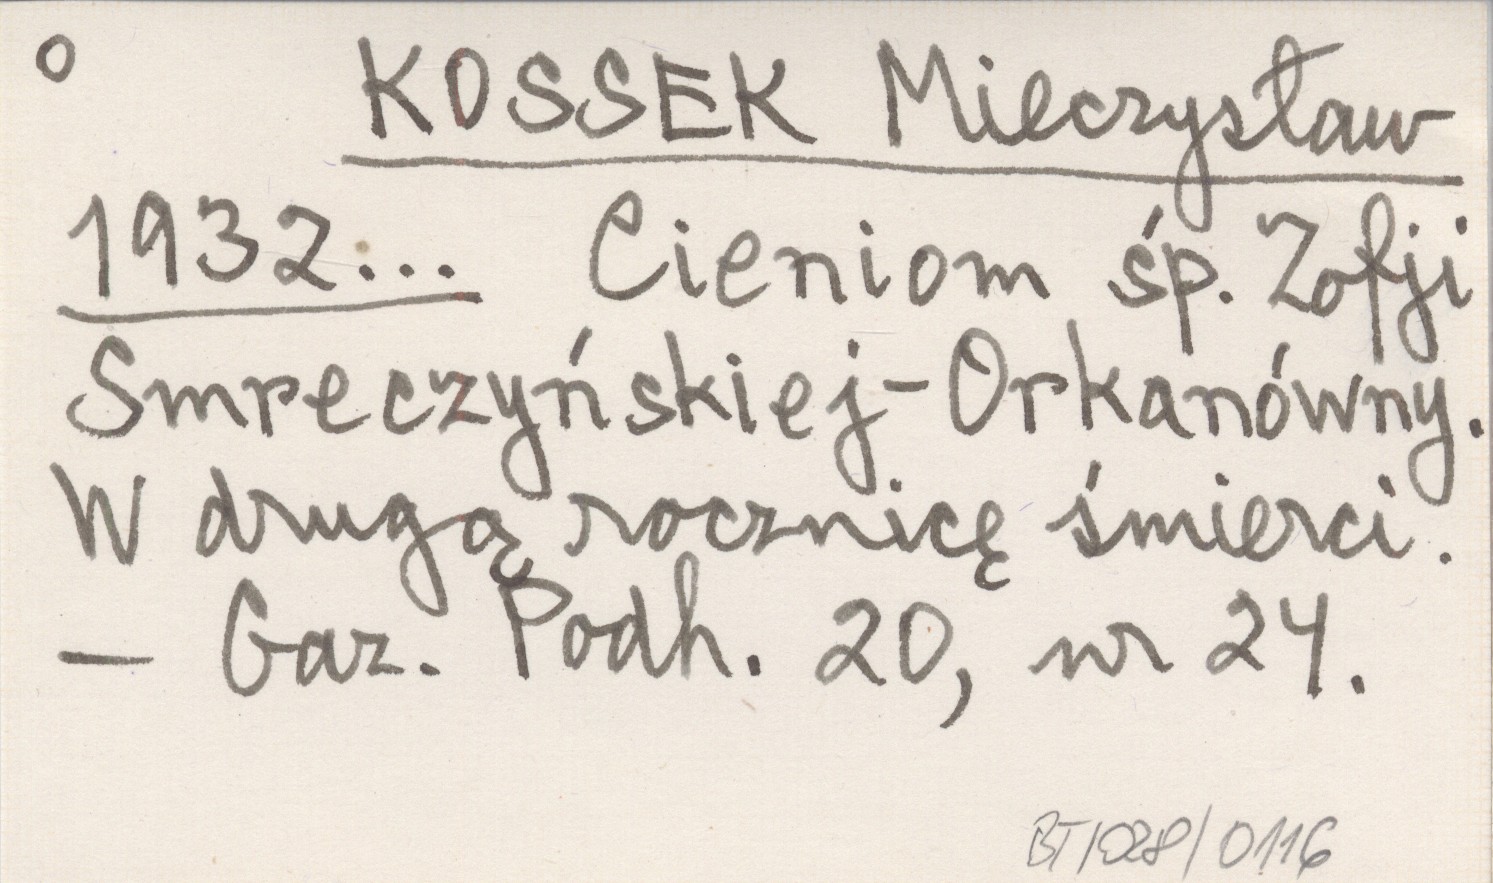 o KOSSEK Mieczysław
1932... Cieniom śp. Zofji
Smreczyńskiej-Orkanówny.
W drugą rocznicę śmierci.
— Gaz. Podh. 20, nr 24.
BT/028/0116